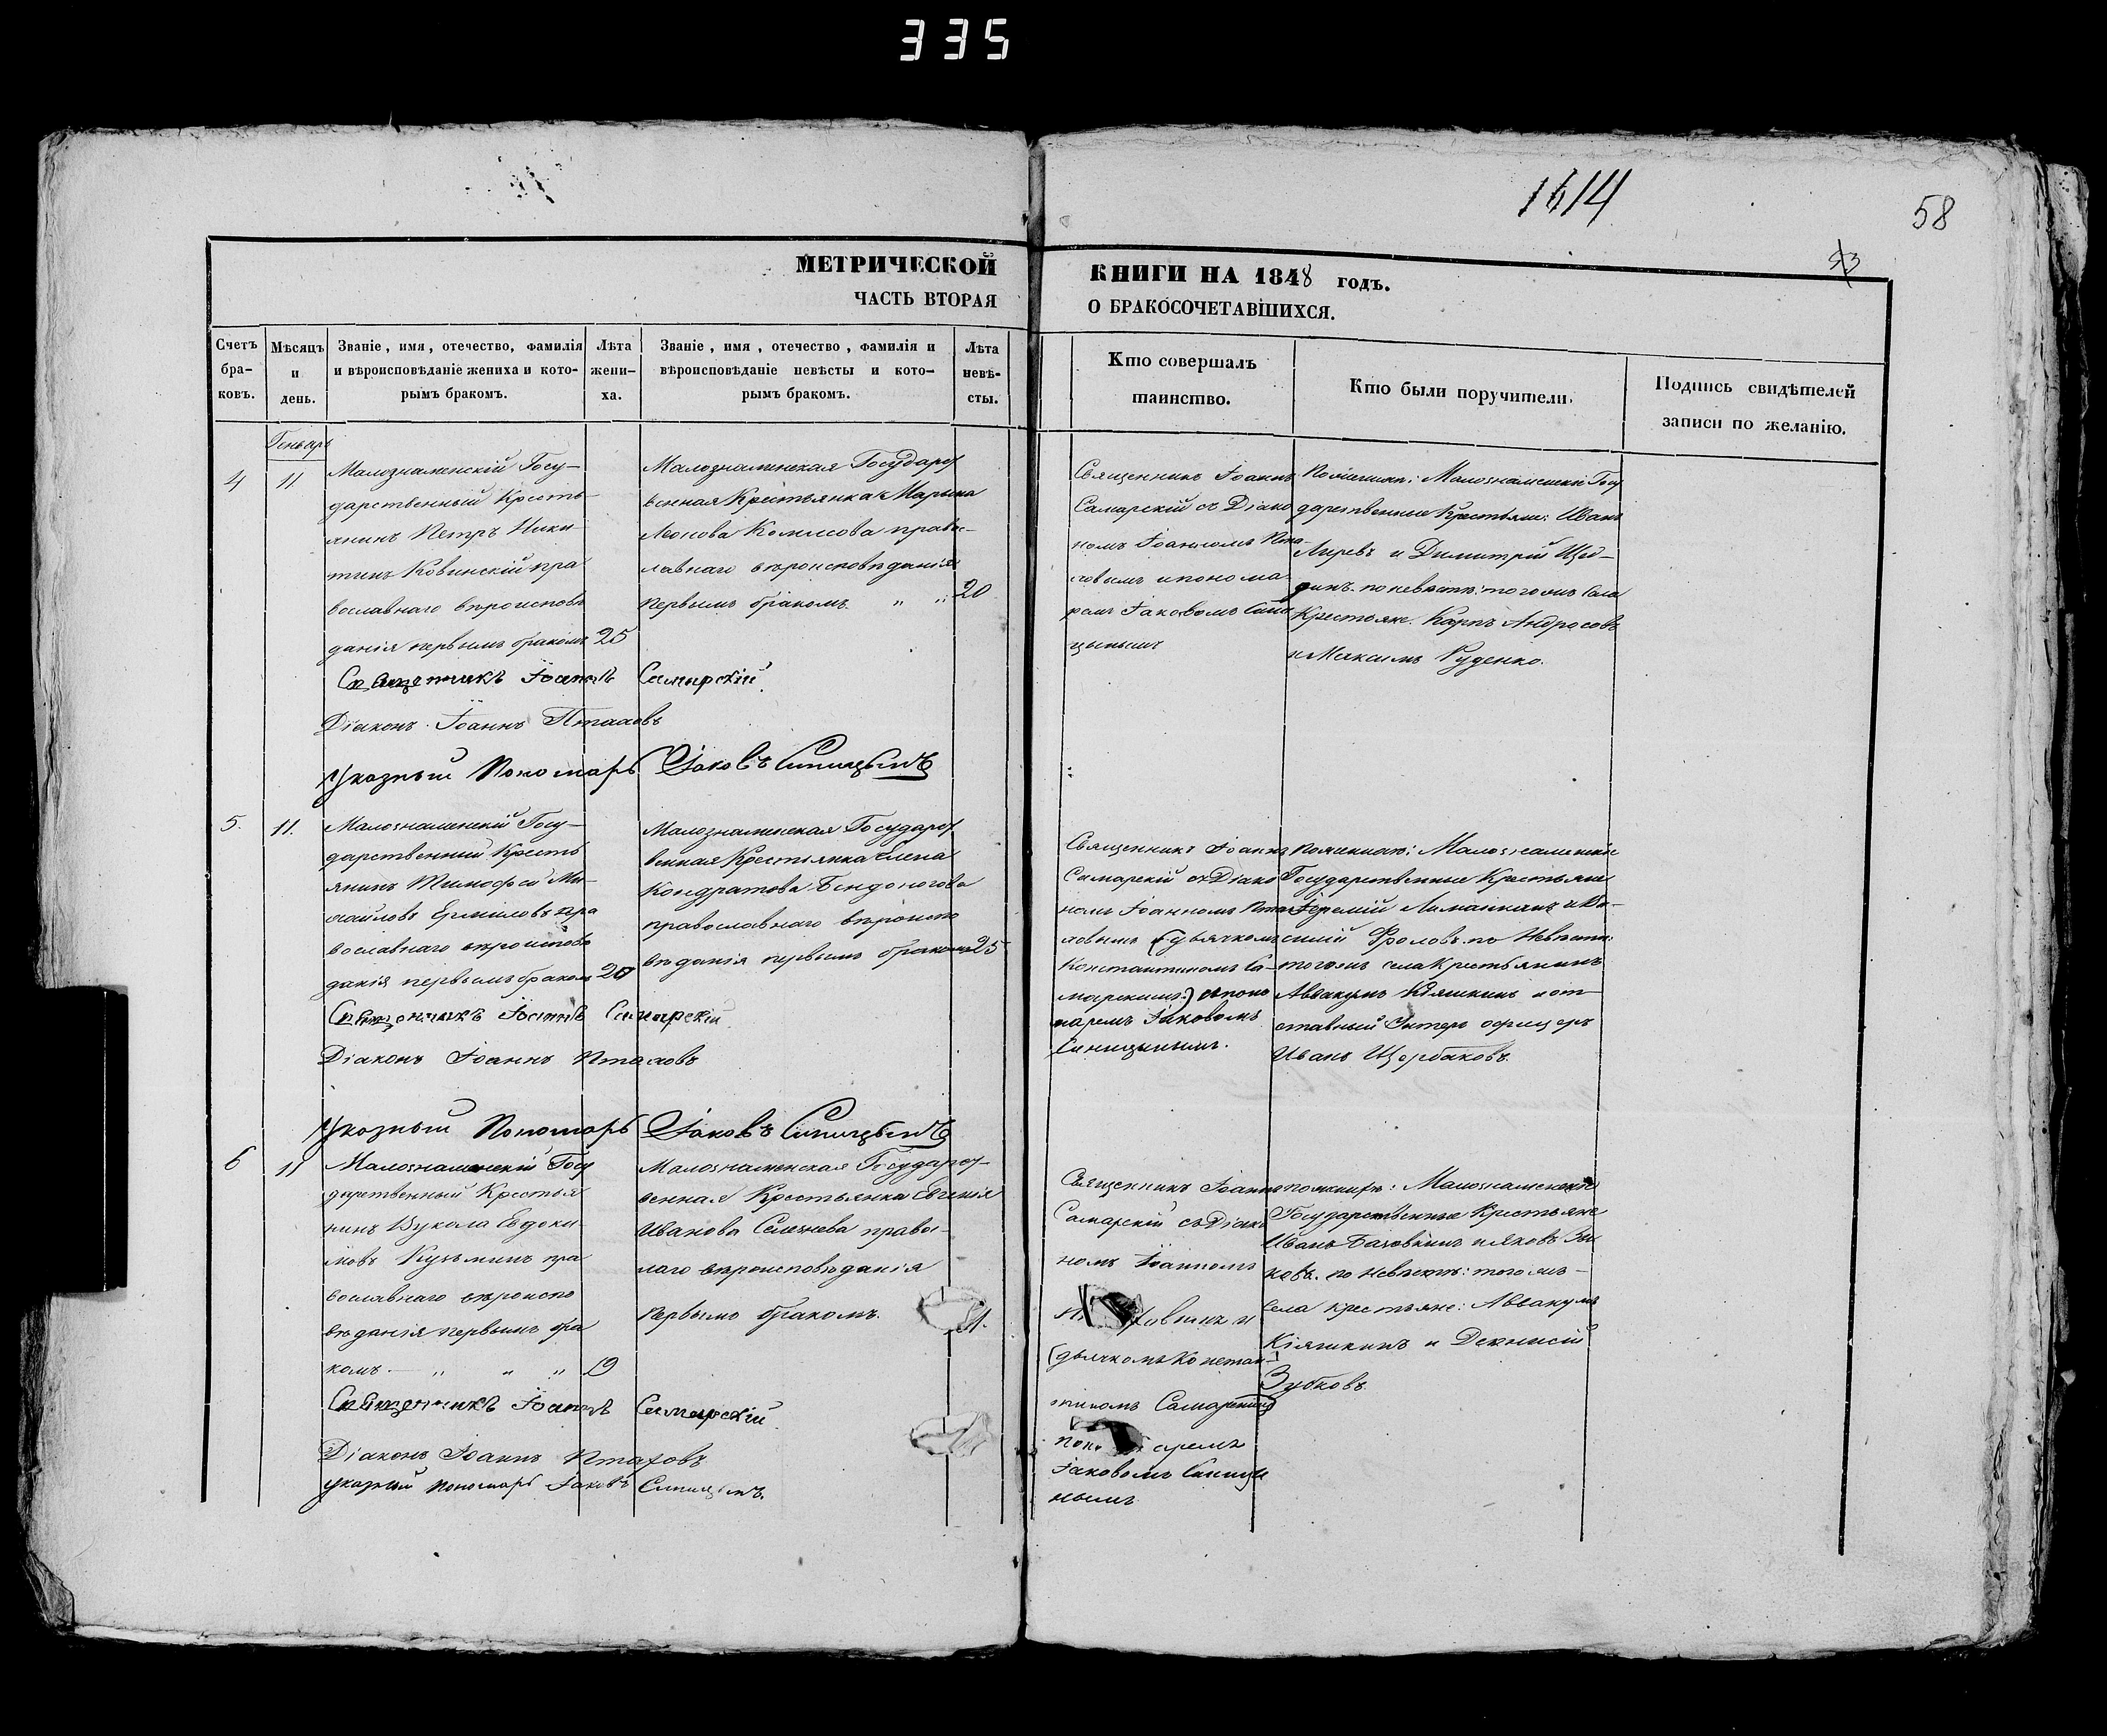 335
1614
58
53
МЕТРИЧЕСКОЙ
ЧАСТЬ ВТОРАЯ
КНИГИ НА 1848 годъ.
О БРАКОСОЧЕТАВШИХСЯ.
Счетъ бра- ковъ.
Мѣсяцъ и день.
Званіе, имя, отечество, фамилія и вѣроисповѣданіе жениха и кото- рымъ бракомъ.
Лѣта жени- ха.
Званіе, имя, отечество, фамилія и вѣроисповѣданіе невѣсты и кото- рымъ бракомъ.
Лѣта невѣ- сты.
Кто совершалъ таинство.
Кто были поручители.
Подпись свидѣтелей записи по желанію.
Генварь
4
11
Малознаменскій Госу-
дарственный Кресть-
янинъ Петръ Ники-
тинъ Ковинскій пра
вославнаго вѣроисповѣ
данія первымъ бракомъ
25
Малознаменская Государст
венная Крестьянка Марьяна
Леонова Комисова право-
славнаго вѣроисповѣданія
первымъ бракомъ " "
20
Священникъ Іоаннъ
Самарскій съ Діако
номъ Іоанномъ Пта-
ховымъ и понома-
ремъ Іаковомъ Сини
цынымъ
По женихѣ: Малознаменскіе Госу
дарственные Крестьяне: Иванъ
и Димитрій Щед-
ринъ. по невѣстѣ: того жъ села
Крестьяне. Карпъ Андросовъ
и Максимъ Руденко.
Священникъ Іоаннъ Самарскій
Діаконъ Іоаннъ Птаховъ
Указный Пономарь Іаковъ Синицынъ
5.
11.
Малознаменскій Госу-
дарственный Кресть
янинъ Тимофей Ми-
хайловъ Ермиловъ пра
вославнаго вѣроисповѣ
данія первымъ бракомъ
20
Малознаменская Государст
венная Крестьянка Елена
Кондратова Бендоногова
православнаго вѣроиспо
вѣданія первымъ бракомъ
25
Священникъ Іоаннъ
Самарскій съ Діако
номъ Іоанномъ Пта
ховымъ (дьячкомъ
Константиномъ Са-
марскимъ) и поно
маремъ Іаковомъ
Синицынымъ.
по женихѣ: Малознаменскіе
Государственные Крестьяне
Іеремій и Ва-
силій Фроловъ. по Невѣстѣ:
тогожъ села Крестьянинъ
Аввакумъ Кіяшкинъ и от-
ставный Унтеръ офицеръ
Иванъ Щербаковъ.
Священникъ Іоаннъ Самарскій
Діаконъ Іоаннъ Птаховъ
Указный Пономарь Іаковъ Синицынъ
6
11
Малознаменскій Госу
дарственный Крестья
нинъ Вукола Евдоки-
мовъ Кузьминъ пра
вославнаго вѣроиспо
вѣданія первымъ бра
комъ. — " " "
19
Малознаменская Государст-
венная Крестьянка Евгенія
Иванова Селезнева правос-
лаго вѣроисповѣданія
первымъ бракомъ.
Священникъ Іоаннъ
Самарскій съ Діако
номъ Іоанномъ
ховымъ и
(дьячкомъ Констан-
тиномъ Самарскимъ)
поно аремъ
Іаковомъ Синицы
нымъ
по женихѣ: Малознаменскіе
Государственные Крестьяне
Иванъ Баловкинъ и Яковъ Зы
ковъ. по невѣстѣ: того жъ-
села крестьяне: Аввакумъ
Кіяшкинъ и Деонисій
Зубковъ.
Священникъ Іоаннъ Самарскій
Діаконъ Іоаннъ Птаховъ
указный пономарь Іаковъ Синицынъ.